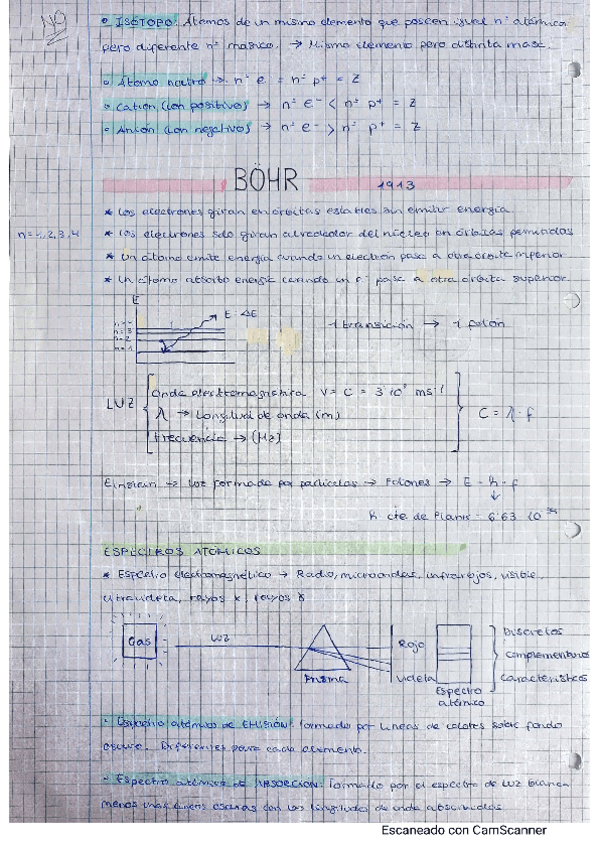 • ISÓTOPO: Átomos de un mismo elemento que poseen igual nº atómico
pero diferente nº másico. → Mismo elemento pero distinta masa.
• Átomo neutro → nº e⁻ = nº p⁺ = Z
• Catión (ion positivo) → nº e⁻ < nº p⁺ = Z
• Anión (ion negativo) → nº e⁻ > nº p⁺ = Z
BÖHR 1913
* Los electrones giran en órbitas estables sin emitir energía.
n=1,2,3,4 * Los electrones sólo giran alrededor del núcleo en órbitas permitidas
* Un átomo emite energía cuando un electrón pasa a otra órbita inferior
* Un átomo absorbe energía cuando un e⁻ pasa a otra órbita superior
E
E = ΔE
n=3
n=2
n=1
1 transición → 1 fotón
LUZ
Onda electromagnética V = C = 3·10⁸ ms⁻¹
λ → Longitud de onda (m)
Frecuencia → (Hz)
C = λ · f
Einstein → Luz formada por partículas → Fotones → E = h · f
h cte. de Plank = 6'63 · 10⁻³⁴
ESPECTROS ATÓMICOS
* Espectro electromagnético → Radio, microondas, infrarrojos, visible,
ultravioleta, rayos x, rayos γ
Gas
LUZ
Prisma
Rojo
Violeta
Espectro
atómico
Discretos
Complementarios
Característicos
· Espectro atómico de EMISIÓN: formado por líneas de colores sobre fondo
oscuro. Diferentes para cada elemento.
· Espectro atómico de ABSORCIÓN: formado por el espectro de luz blanca
menos unas líneas oscuras con las longitudes de onda absorbidas
Escaneado con CamScanner